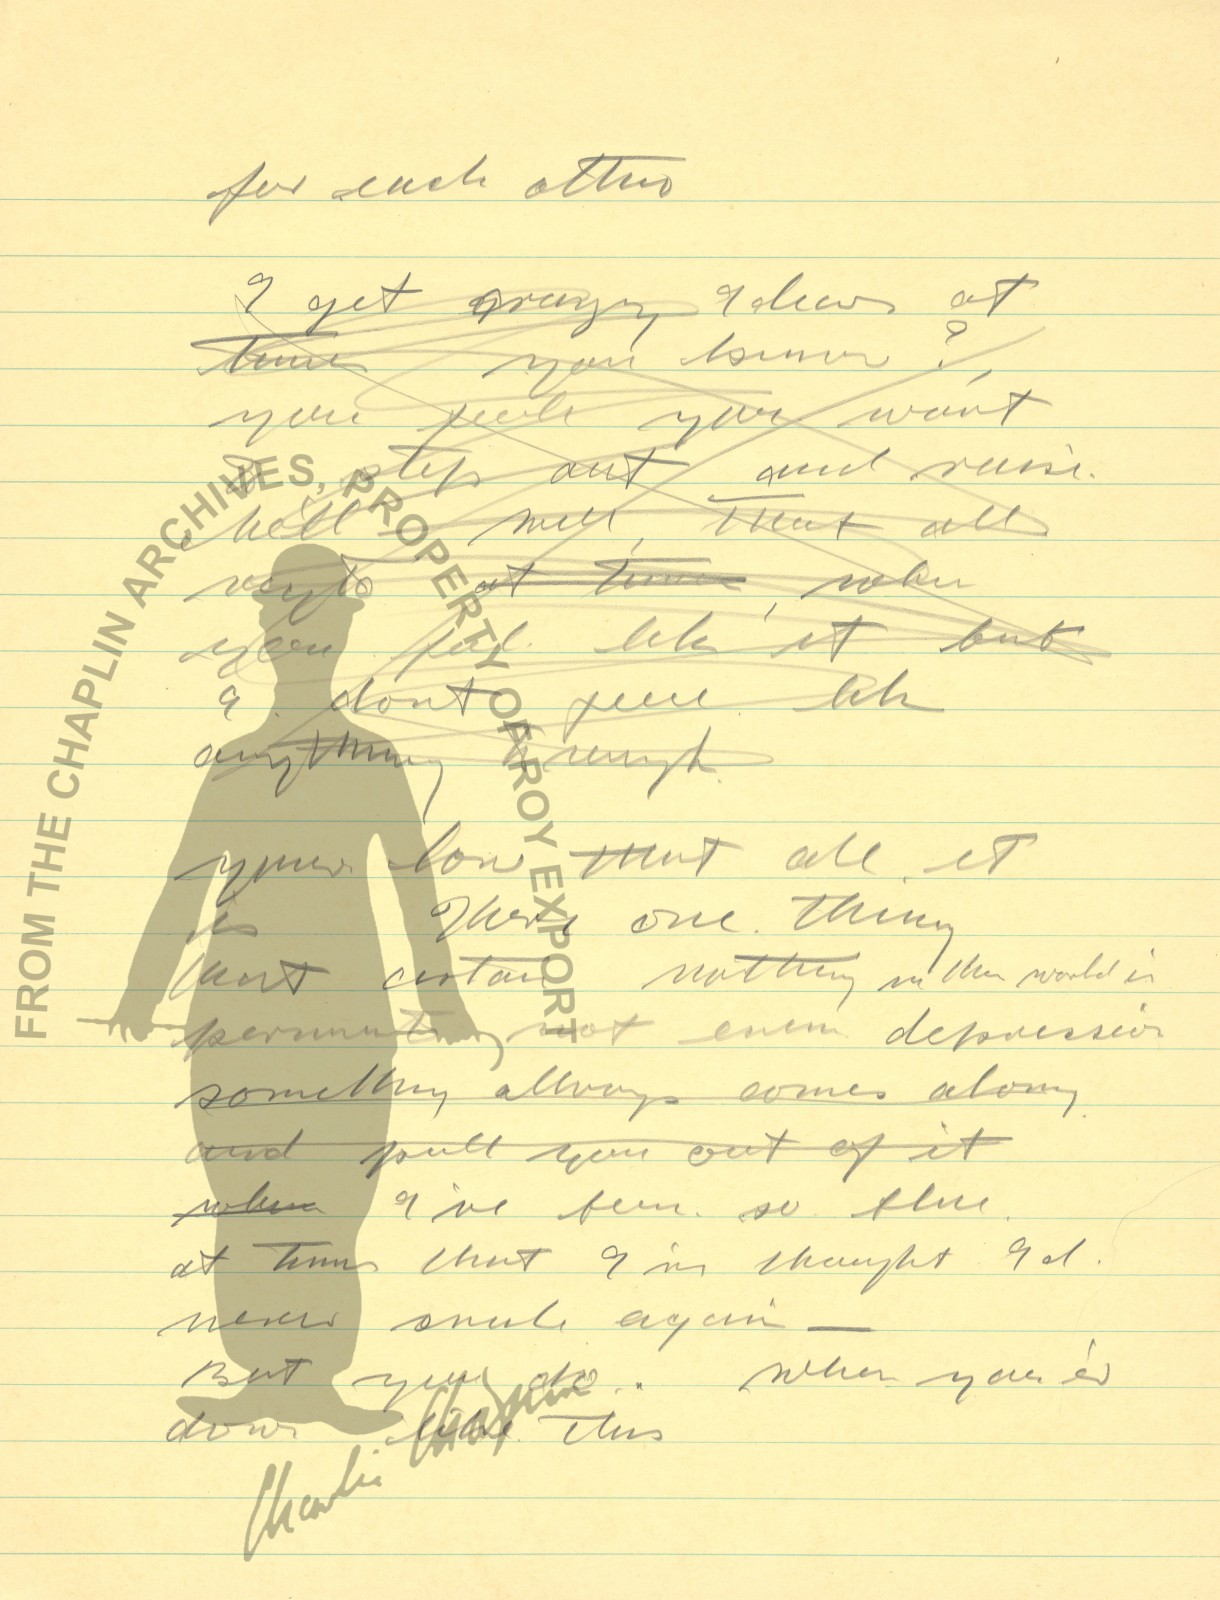 for each other
I get crazy ideas at
times you know?
you feel you want
to step out and raise
hell well, that all
right at times, when
you feel like it but
I dont feel like
anything enough
your low that all it
is There one thing
that certain nothing in the world is
permanent not even depression
something allways comes along
and pull you out of it
when I've been so blue
at times that I've thought I'd
never smile again —
But you do.. when you're
down like this
FROM THE CHAPLIN ARCHIVES, PROPERTY OF ROY EXPORT
Charlie Chaplin